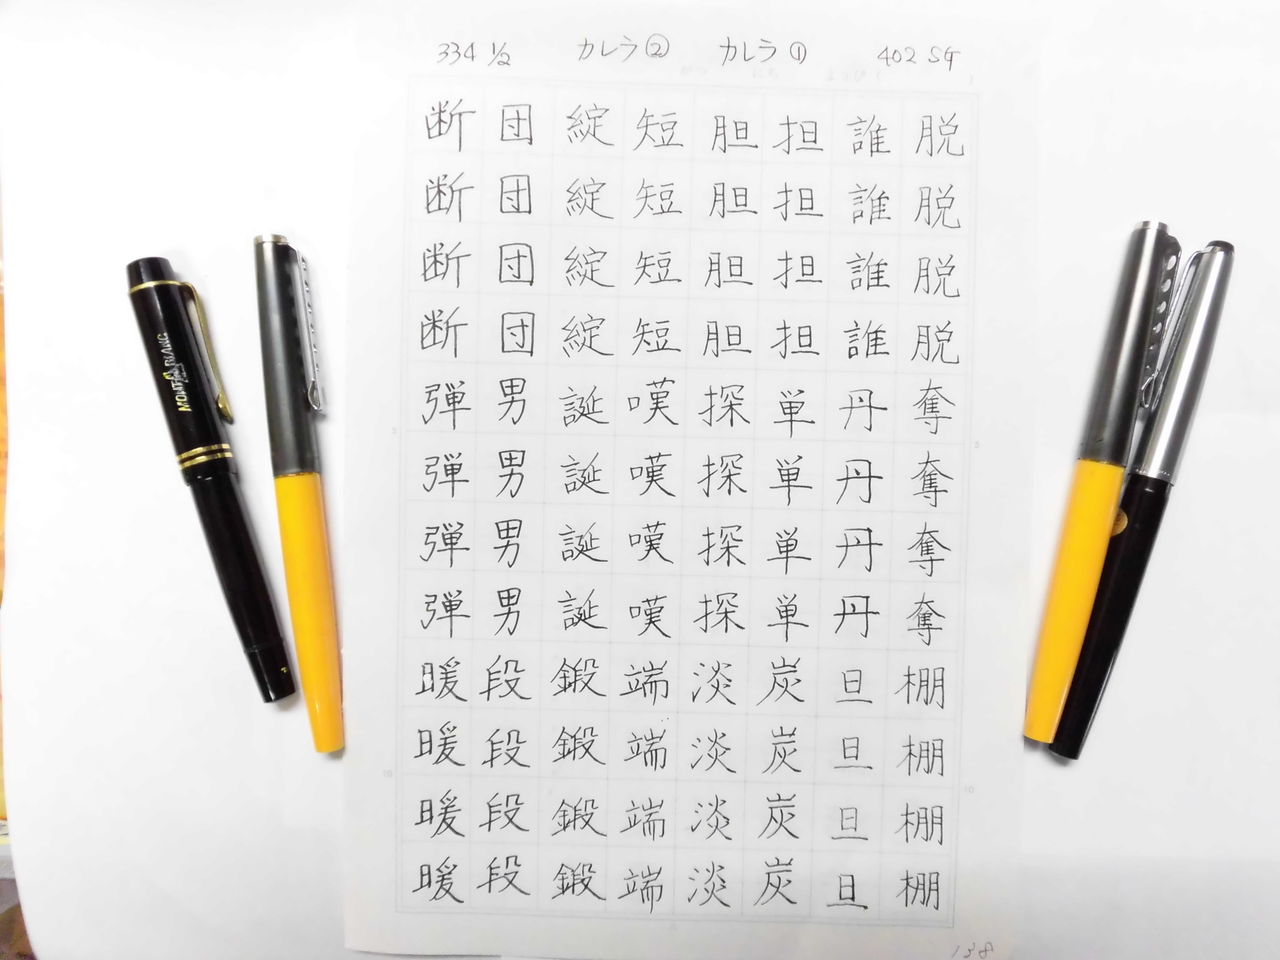 334 ½ カレラ② カレラ① 402 SG
脱脱脱脱奪奪奪奪棚棚棚棚
誰誰誰誰丹丹丹丹旦旦旦旦
担担担担単単単単炭炭炭炭
胆胆胆胆探探探探淡淡淡淡
短短短短嘆嘆嘆嘆端端端端
綻綻綻綻誕誕誕誕鍛鍛鍛鍛
団団団団男男男男段段段段
断断断断弾弾弾弾暖暖暖暖
138
MONTBLANC